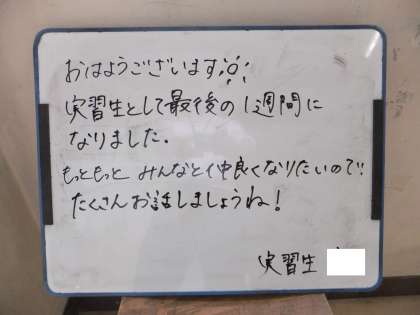 おはようございます
実習生として最後の1週間に
なりました.
もっともっと みんなと仲良くなりたいので!
たくさんお話しましょうね!
実習生